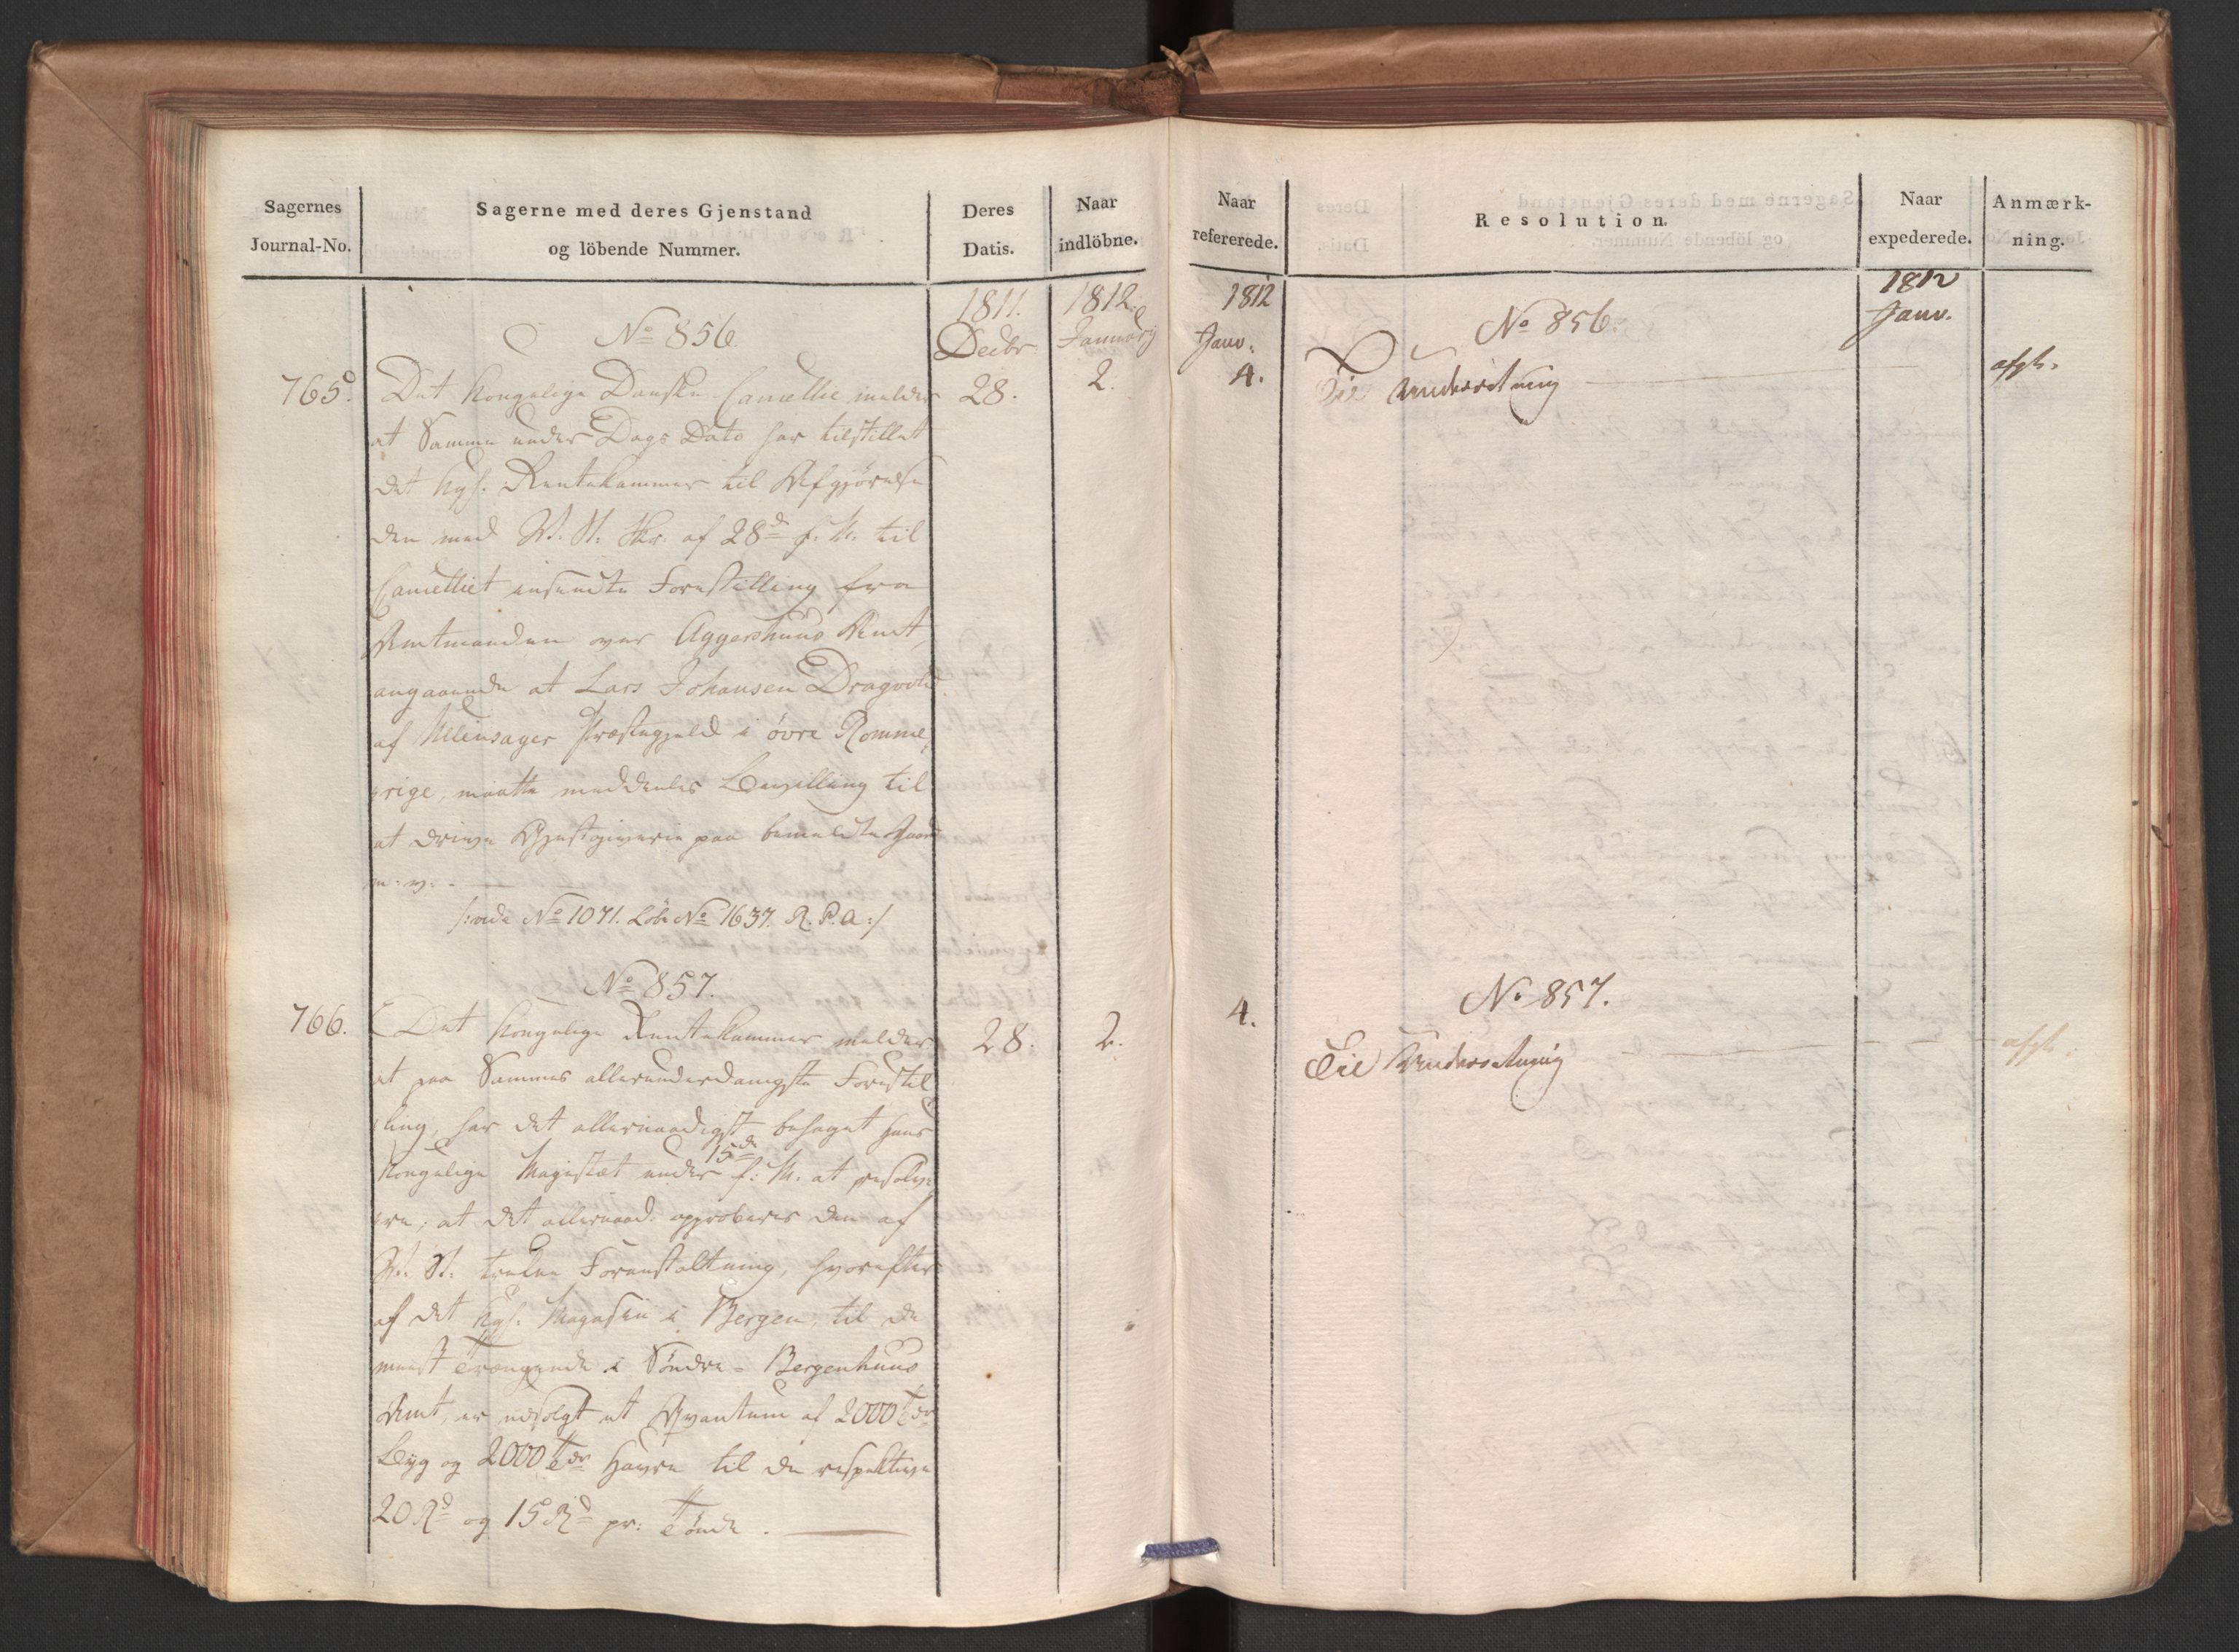 Sagernes
Journal-No.
Sagerne med deres Gjenstand
og löbende Nummer.
Deres
Datis.
Naar
indlöbne.
1811.
Decbr
1812.
Januarij
No 856.
765.
Det Kongelige Danske Cancellie melder
28.
2.
at Samme under Dags Dato har tilstillet
det kgl. Rentekammer til Afgjørelse
den med R. K. Skr. af 28d f. M. til
Cancelliet insendte Forestilling fra
Amtmanden over Aggershuus Amt,
angaaende at Lars Johansen Dragvold
af Ullensager Præstegjeld i øvre Romme,
rige, maatte meddeles Bevilling til
at drive Gjestgiverie paa bemeldte Gaard
m. v. -
/: vide No 1071. Løbe No 1637. R. P. A :/
No 857.
766.
Det Kongelige Rentekammer melder
28.
2.
at paa Sammes allerunderdanigste Forestil
ling, har det allernaadigst behaget Hans
Kongelige Majestæt under 15de f. M. at resolve
re, at det allernaad. approberes den af
R. K. trufne Foranstaltning, hvorefter
af det kgl. Magasin i Bergen, til de
meest Trængende i Søndre-Bergenhuus
Amt, er udsolgt et Qvantum af 2000 Tdr
Byg og 2000 Tdr Havre til de respektive
20 Rd og 15 Rd pr. Tønde.
Naar
refererede.
Resolution.
Naar
expederede.
Anmærk-
ning.
1812
Janv.
4.
1812
Janv.
No 856.
Til Underretning
afgh.
No 857.
4.
Til Underretning
afgh.